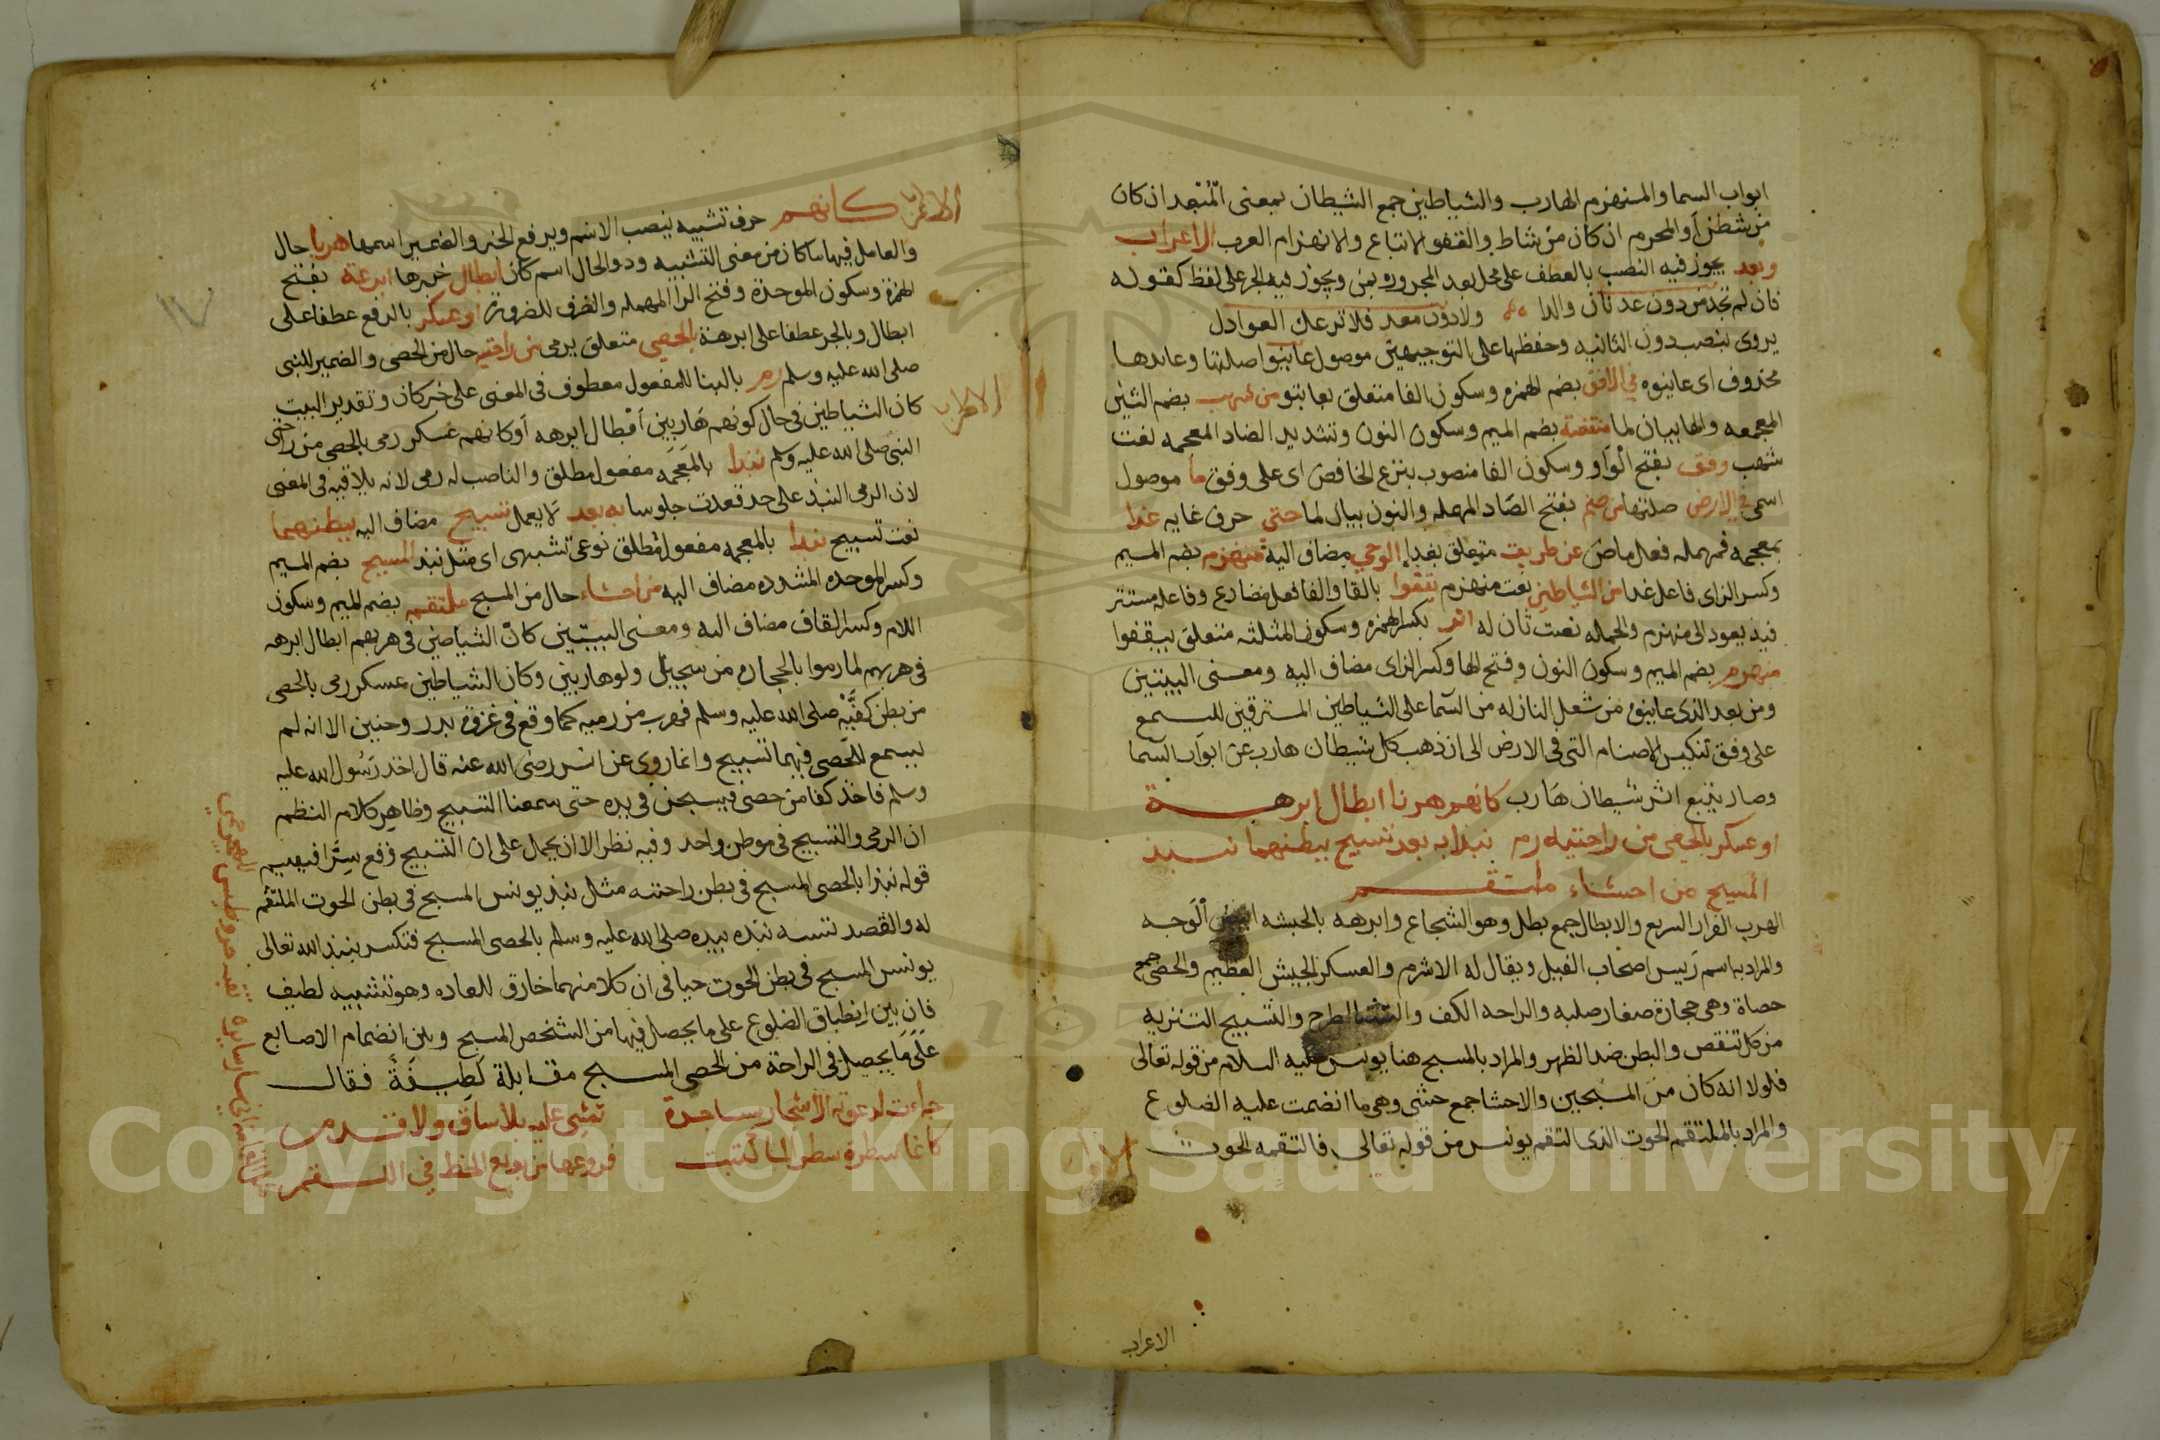 ابواب السما والمنهزم الهارب والشياطين جمع الشيطان بمعنى المُبْعَد ان كان
من شطن أو المحرم ان كان من شاط والقفو الاتباع والانهزام الهرب الاعراب
وبعد يجوز فيه النصب بالعطف على محل بعد المجروره بمن ويجوز فيه الجر على لفظ كقوله
فان لم تجد من دون عدنان والدا ولا دون معد فلا ترعك العواذل
يروى بنصب دون الثانيه وخفظها على التوجيهين موصول عاينوا صلتها وعايدها
محذوف اى عاينوه في الافق بضم الهمزه وسكون الفا متعلق بعاينو من شهب بضم الشين
المعجمه والها بيان لما منقضة بضم الميم وسكون النون وتشديد الضاد المعجمه نعت
شهب وفق بفتح الواو وسكون الفا منصوب بنزع الخافض اى على وفق ما موصول
اسمى في الارض صلتها من صنم بفتح الصاد المهمله والنون بيان لما حتى حرف غايه غدا
بمعجمه فمهمله فعل ماض عن طريق متعلق بغدا الوحي مضاف اليه منهزم بضم الميم
وكسر الزاى فاعل غدا من الشياطين نعت منهزم يقفوا بالقاف والفا فعل مضارع وفاعله مستتر
فيه يعود الى منهزم والجمله نعت ثان له اثر بكسر الهمزه وسكون المثلثه متعلق بيقفوا
منهزم بضم الميم وسكون النون وفتح الها وكسر الزاى مضاف اليه ومعنى البيتين
ومن بعد الذى عاينوه من شعل النار له من السما على الشياطين المسترقين للسمع
على وفق تنكيس الاصنام التى فى الارض الى ان ذهب كل شيطان هارب عن ابواب السما
وصار يتبع اثر شيطان هَارب كانهم هربا ابطال ابرهـة
او عسكر بالحصى من راحتيه رم نبذا به بعد تسبيح ببطنهما نبذ
المسبح من احشاء ملتقـم
الهرب الفرار السريع والابطال جمع بطل وهو الشجاع وابرهه بالحبشه ابيض الوجه
والمراد به اسم رَييس اصحاب الفيل ويقال له الاشرم والعسكر الجيش العظيم والحصى جمع
حصاة وهى حجارة صغار صلبه والراحه الكف والطرح والتسبيح التنزيه
من كل تنقص والبطن ضد الظهر والمراد بالمسبح هنا يونس عليه السلام من قوله تعالى
فلولا انه كان من المسبحين والاحشا جمع حشى وهى ما انضمت عليه الضلوع
والمراد بالملتقم الحوت الذى التقم يونس من قوله تعالى فالتقمه الحوت
الاعراب
الاعراب كانهم حرف تشبيه ينصب الاسم ويرفع الخبر والضمير اسمها هربا حال
والعامل فيها ما كان من معنى التشبيه وذو الحال اسم كان ابطال خبرها ابرهة بفتح
الهمزة وسكون الموحدة وفتح الرا المهمله والصرف للضرورة او عسكر بالرفع عطفا على
ابطال وبالجر عطفا على ابرهة بالحصى متعلق برمى من راحتيه حال من الحصى والضمير للنبى
صلى الله عليه وسلم رم بالبنا للمفعول معطوف فى المعنى على خبر كان وتقدير البيت
كان الشياطين فى حال كونهم هَاربين ابطال ابرهه أو كانهم عسكر رمى بالحصى من راحتى
النبى صلى الله عليه وسلم نبذا بالمعجمه مفعول مطلق والناصب له رمى لانه يلاقيه فى المعنى
لان الرمى النبذ على حد قعدت جلوسا به بعد لا يعمل تسبيح مضاف اليه ببطنهما
نعت تسبيح نبذا بالمعجمه مفعول مطلق نوعى تشبيهى اى مثل نبذ المسبح بضم الميم
وكسر الموحده المشدده مضاف اليه من احشاء حال من المسبح ملتقم بضم الميم وسكون
اللام وكسر القاف مضاف اليه ومعنى البيتين كانّ الشياطين فى هربهم ابطال ابرهه
فى هربهم لما رموا بالحجاره من سجيل ولوها ربين وكان الشياطين عسكر رمى بالحصى
من بطن كفّيْه صلى الله عليه وسلم فهرب من رميه كما وقع فى غزوة بدر وحنين الا انه لم
يسمع للحصى فيهما تسبيح وانما روى عن انس رضى الله عنه قال اخذ رَسُول الله عليه
وسلم فاخذ كفا من حصى فسبحن فى يده حتى سمعنا التسبيح وظاهر كلام النظم
ان الرمى والتسبيح فى موطن واحد وفيه نظر الا ان يحمل على ان التسبيح وقع سِرًّا
قوله نبذا بالحصى المسبح فى بطن راحته مثل نبذ يونس المسبح فى بطن الحوت الملتقم
له والقصد تشبيه نبذه بيده صلى الله عليه وسلم بالحصى المسبح فتكسر بنبذ الله تعالى
يونس المسبح فى بطن الحوت حيا فى ان كلا منهما خارق للعاده وهو تشبيه لطيف
فان بين انطباق الضلوع على ما يحصل فيها من الشخص المسبح وبين انضمام الاصابع
على مَا يحصل فى الراحة من الحصى المسبح مقابلة لَطِيفَةً فقال
جاءت لدعوته الاشجار ساجدة تمشى عليه بلا ساق ولا قـدم
كأنما سطرة سطرا لما كتبت فروعها من بديع الخط فى اللـقم
١٧
الاعراب
Copyright © King Saud University
1957